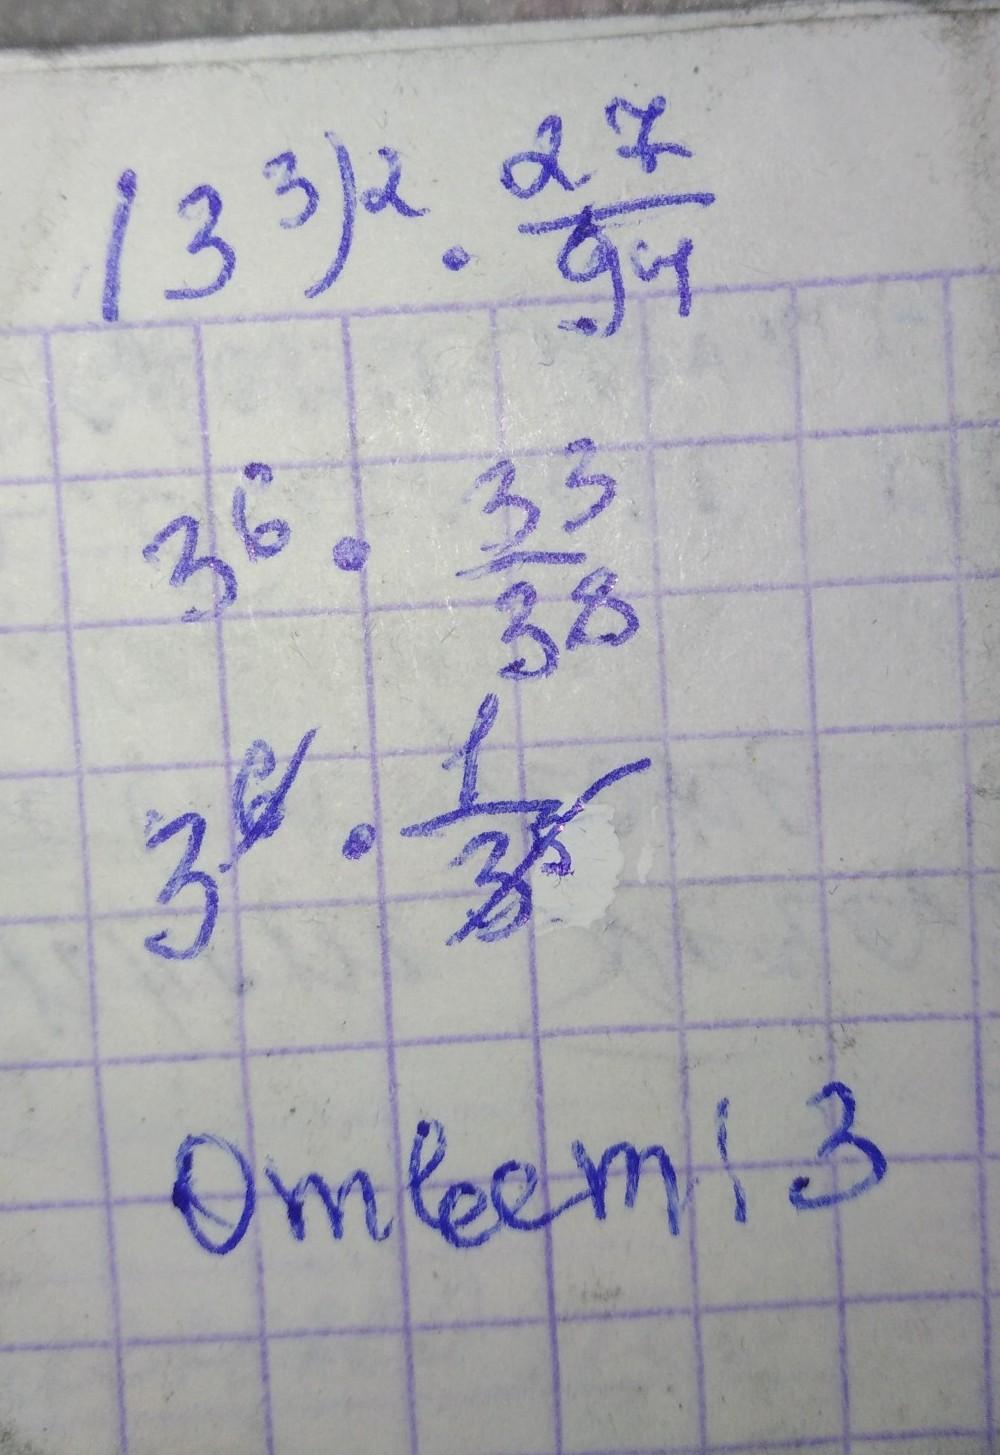 (3³)² · 27/9⁴
3⁶ · 3³/3⁸
3⁶ · 1/3⁵
Ответ: 3